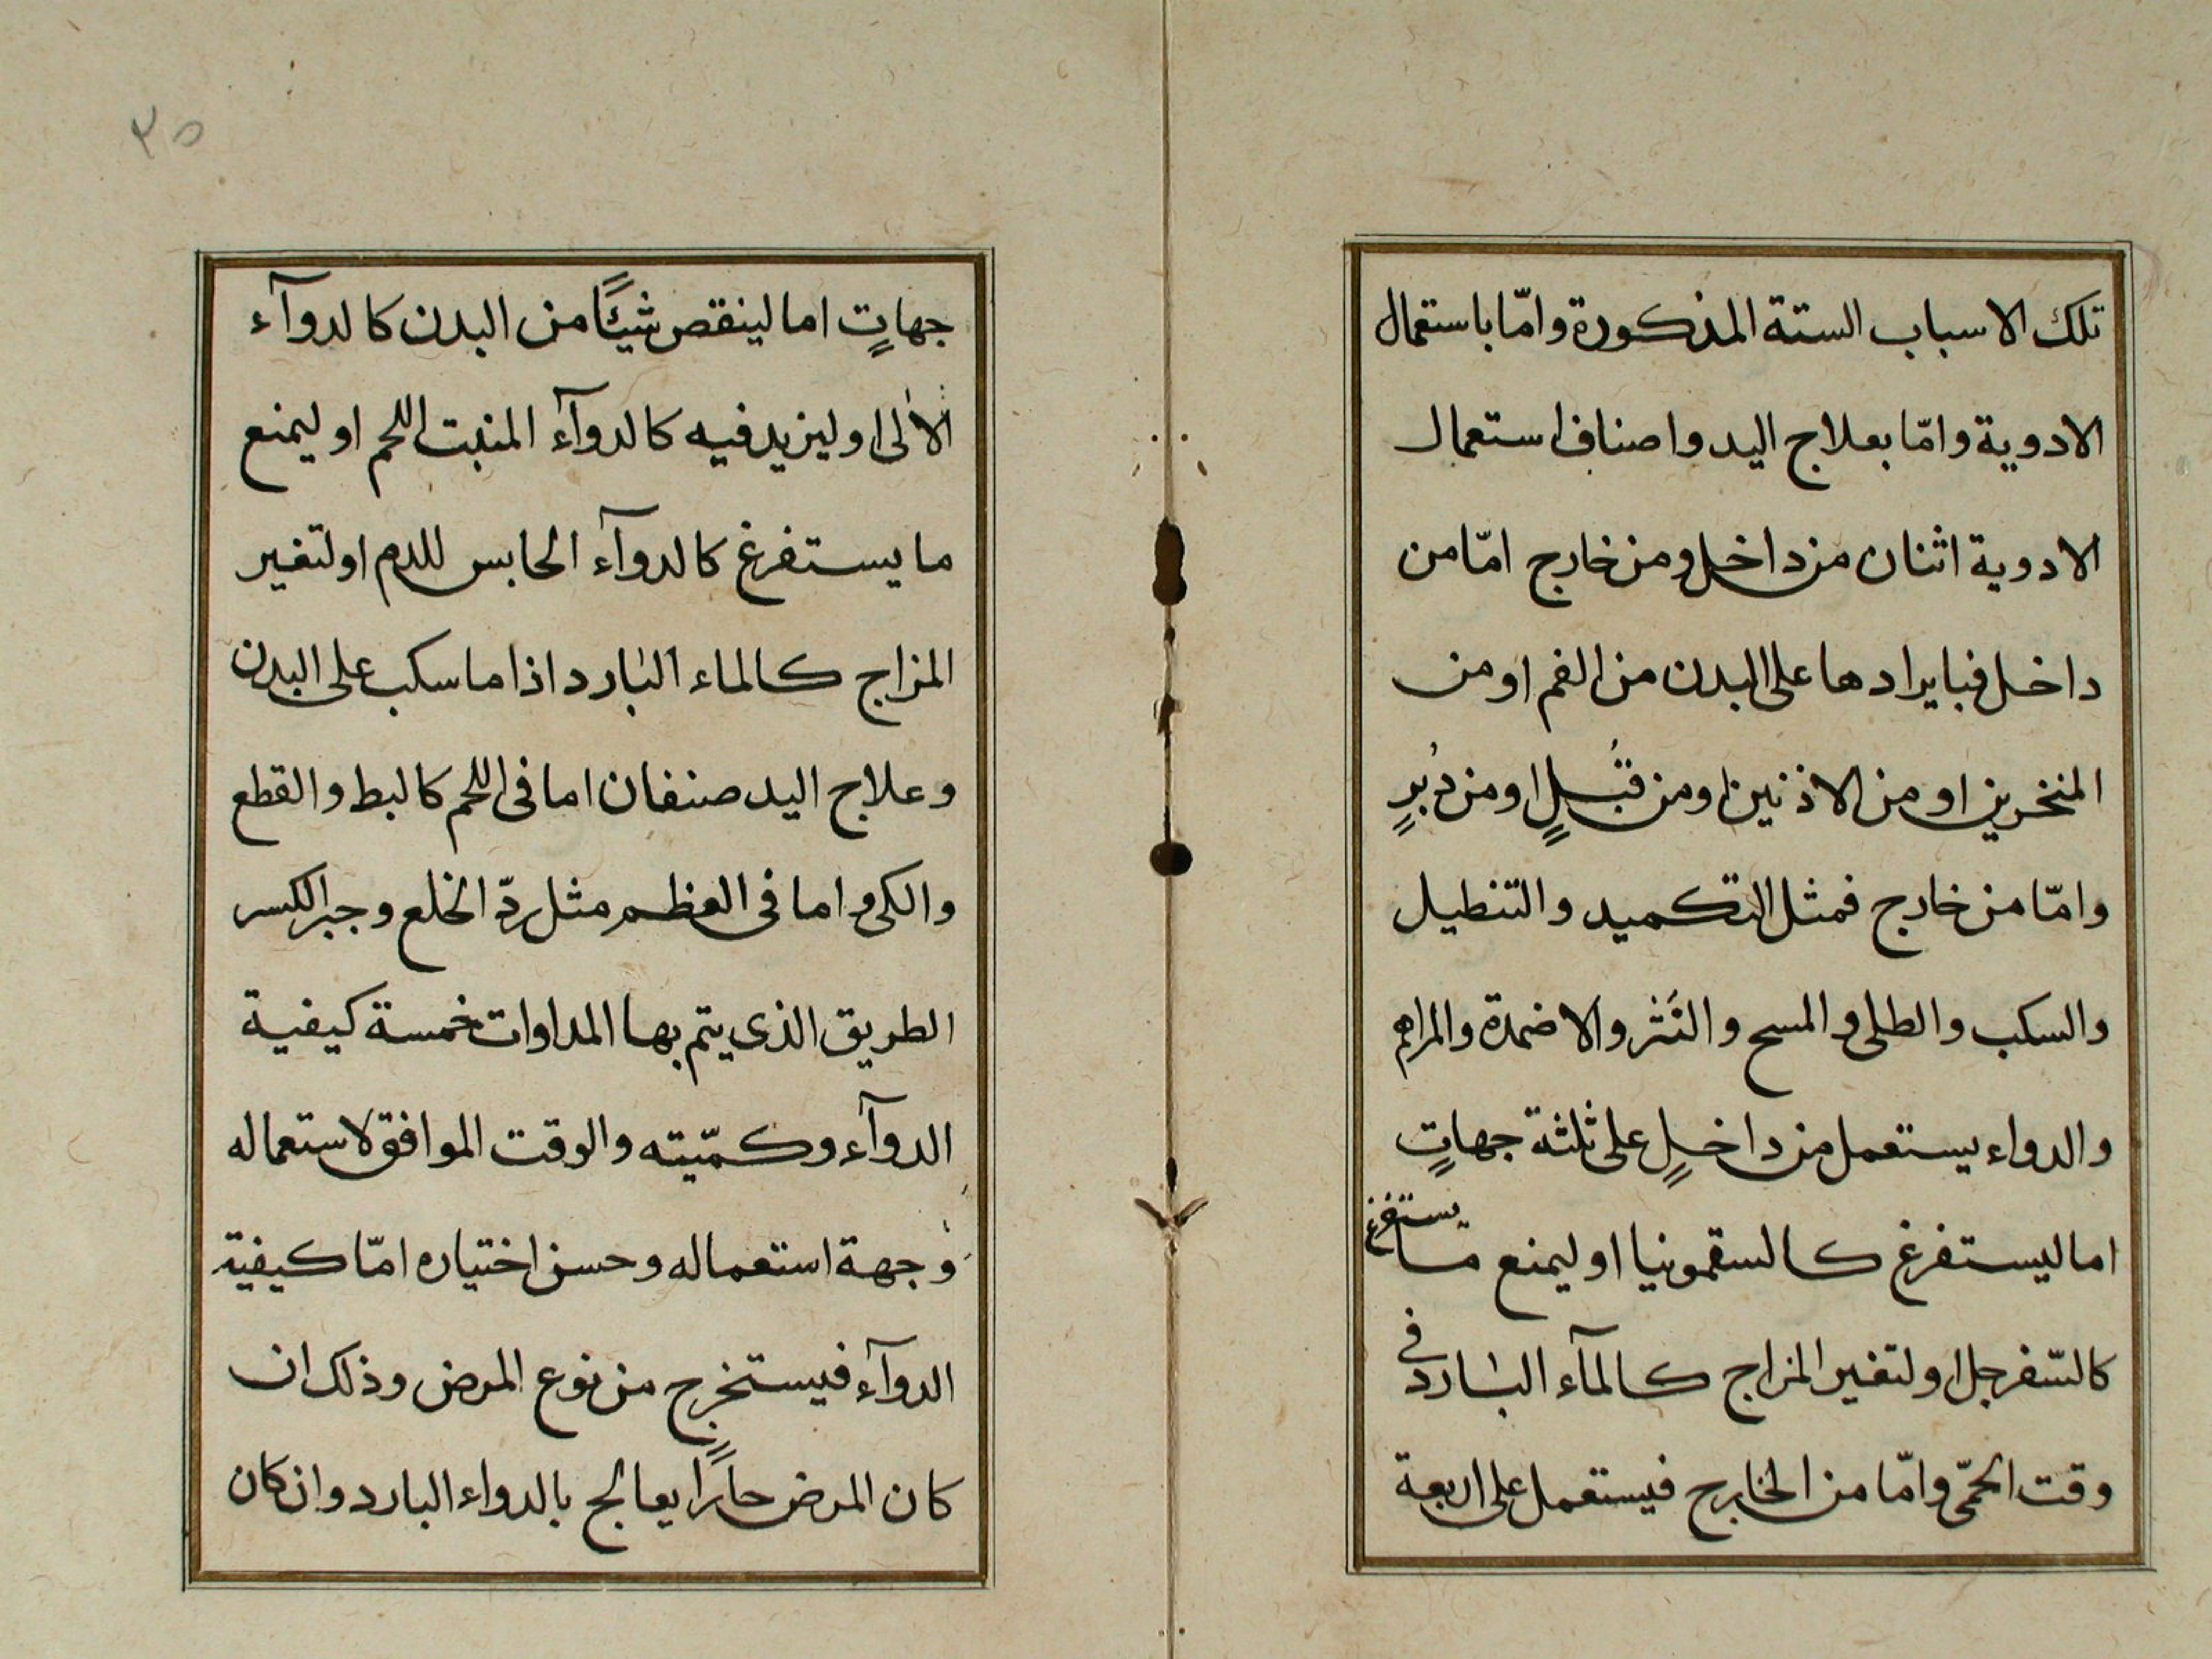 تلك الاسباب الستة المذكورة وامّا باستعمال
الادوية وامّا بعلاج اليد واصناف استعمال
الادوية اثنان من داخل ومن خارج امّا من
داخل فبايرادها على البدن من الفم او من
المنخرين او من الاذنين او من قُبُلٍ او من دُبرٍ
وامّا من خارج فمثل التكميد والتنطيل
والسكب والطلى والمسح والنَثر والاضمدة والمراهم
والدواء يستعمل من داخلٍ على ثلثة جهاتٍ
اما ليستفرغ كالسقمونيا او ليمنع ما يستفرغ
كالسّفرجل او لتغير المزاج كالمآء البارد فى
وقت الحمّى وامّا من الخارج فيستعمل على اربعة
٣٥
جهاتٍ اما لينقص شيئًا من البدن كالدوآء
الاٰلى او ليزيد فيه كالدوآء المنبت اللحم او ليمنع
ما يستفرغ كالدوآء الحابس للدم او لتغير
المزاج كالماء البارد اذا ما سكب على البدن
وعلاج اليد صنفان اما فى اللحم كالبط والقطع
والكى واما فى العظم مثل ردّ الخلع وجبر الكسر
الطريق الذى يتم بها المداوات خمسة كيفية
الدوآء وكمّيته والوقت الموافق لاستعماله
وجهة استعماله وحسن اختياره امّا كيفية
الدوآء فيستخرج من نوع المرض وذلك ان
كان المرض حارًا يعالج بالدواء البارد وان كان